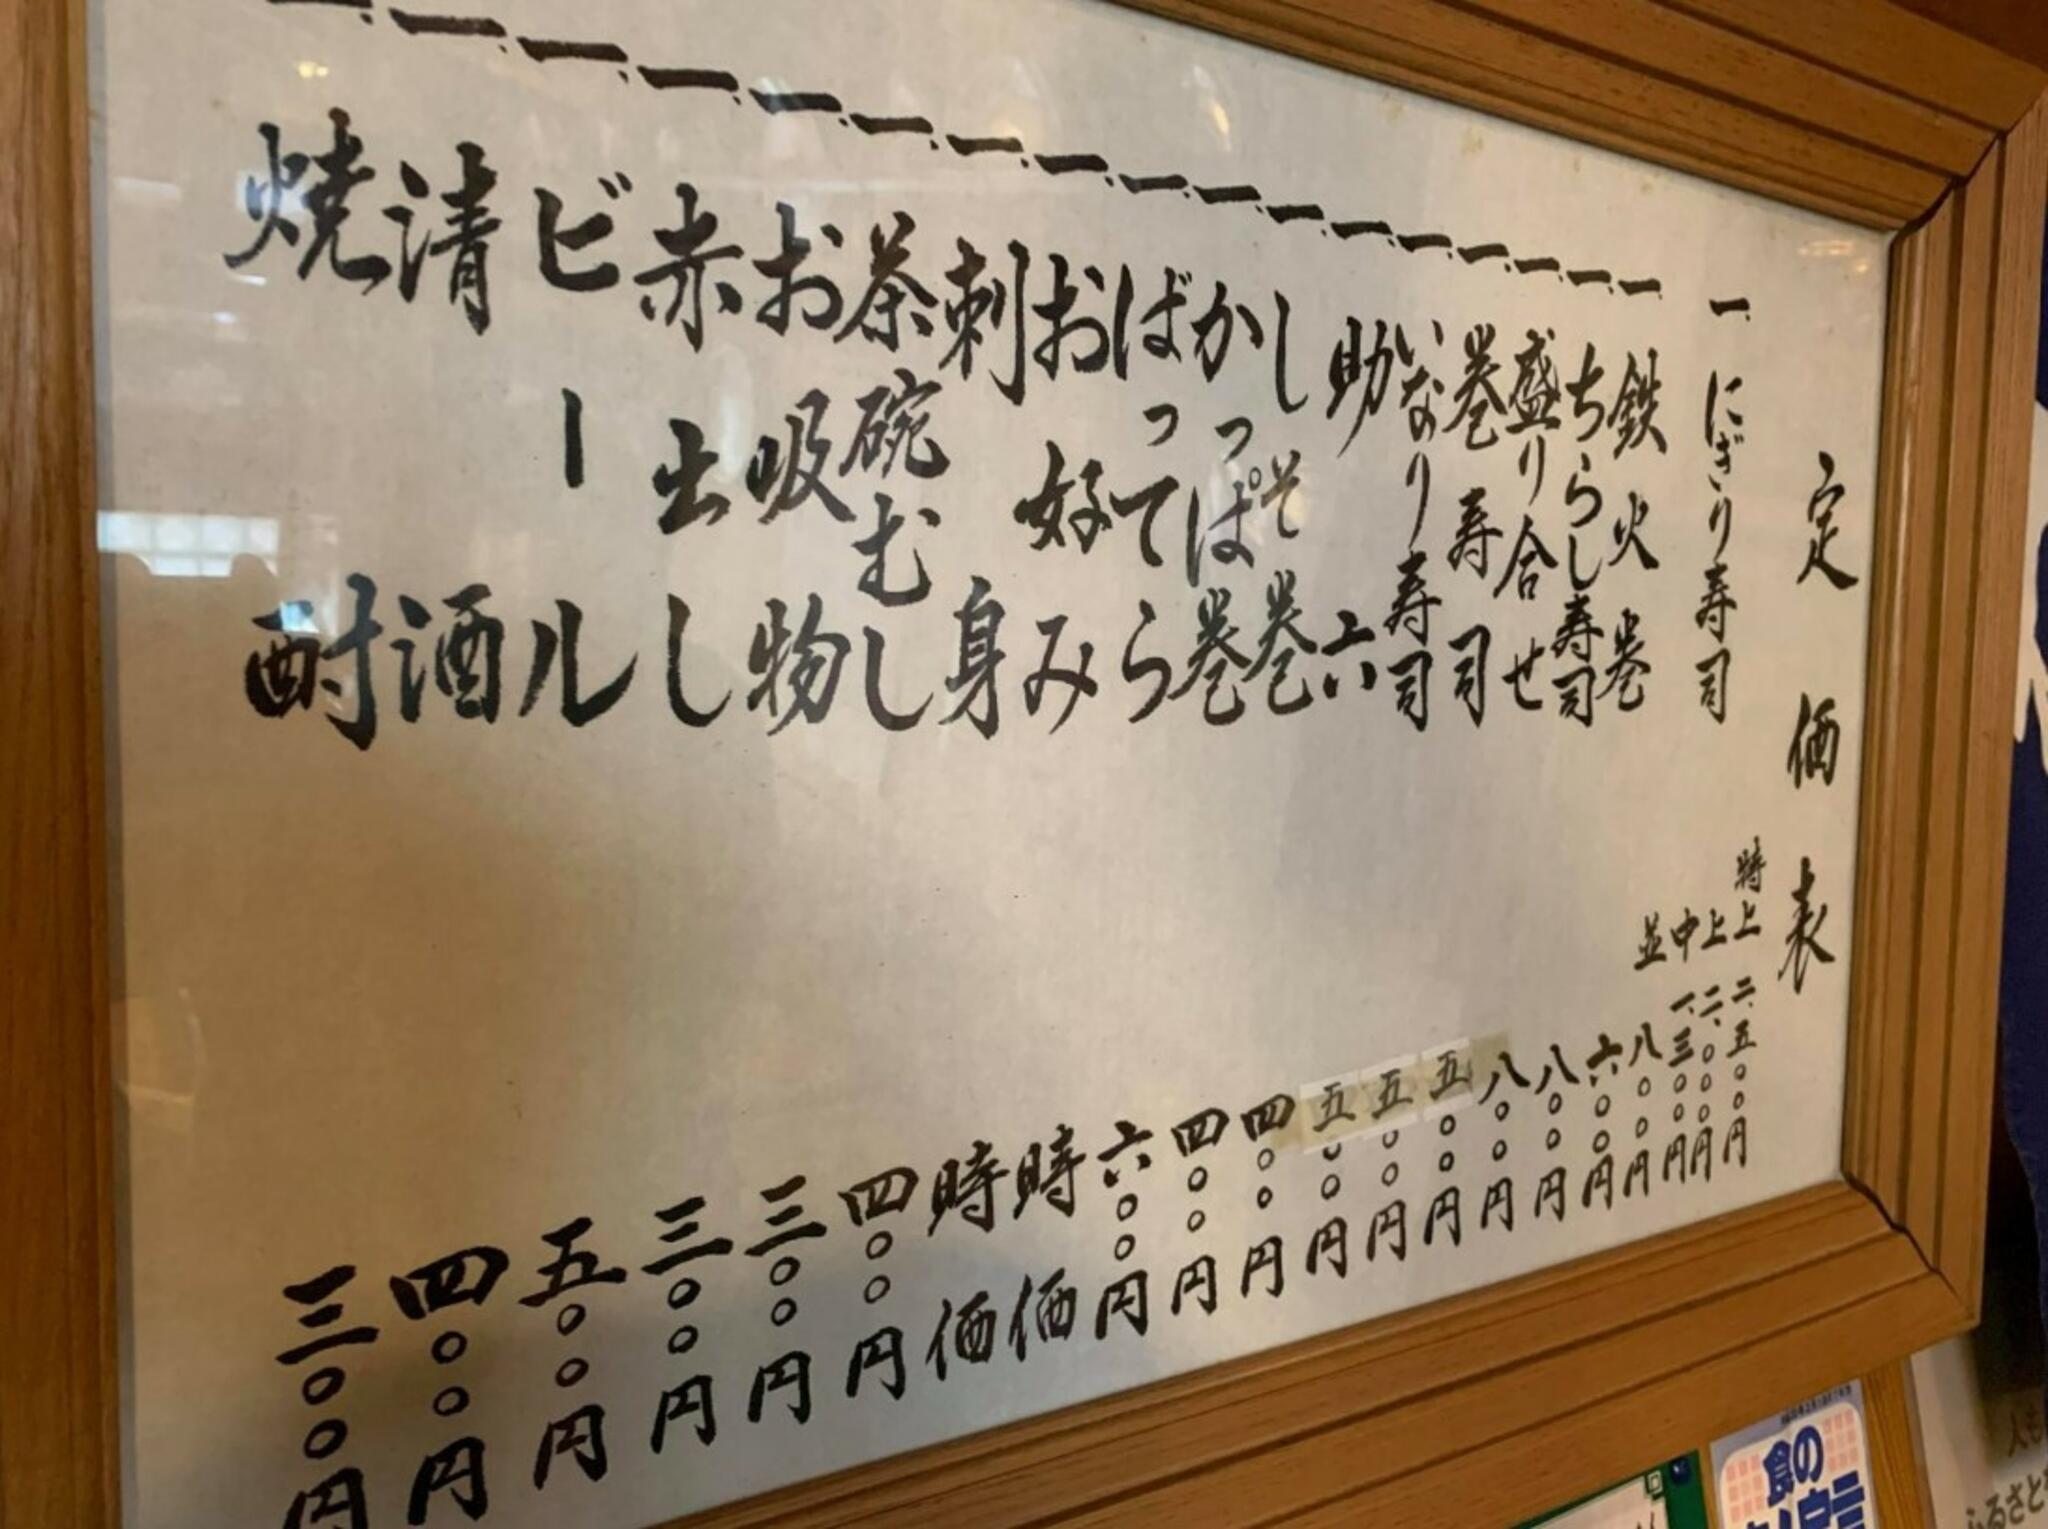 定価表
一、にぎり寿司 特上 二、五〇〇円
上 二、〇〇〇円
中 一、三〇〇円
並 八〇〇円
一、鉄火巻 六〇〇円
一、ちらし寿司 八〇〇円
一、盛り合せ 八〇〇円
一、巻寿司 五〇〇円
一、いなり寿司 五〇〇円
一、助六 五〇〇円
一、しそ巻 四〇〇円
一、かっぱ巻 四〇〇円
一、ばってら 六〇〇円
一、お好み 時価
一、刺身 時価
一、茶碗むし 四〇〇円
一、お吸物 三〇〇円
一、赤出し 三〇〇円
一、ビール 五〇〇円
一、清酒 四〇〇円
一、焼酎 三〇〇円
食の
人も
ふるさと